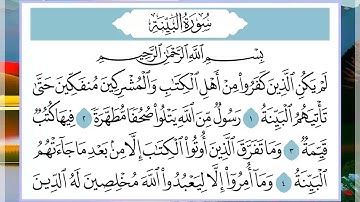 سُورَةُ البَيِّنَةِ
بِسْمِ ٱللَّهِ ٱلرَّحْمَٰنِ ٱلرَّحِيمِ
لَمْ يَكُنِ ٱلَّذِينَ كَفَرُوا۟ مِنْ أَهْلِ ٱلْكِتَٰبِ وَٱلْمُشْرِكِينَ مُنفَكِّينَ حَتَّىٰ
تَأْتِيَهُمُ ٱلْبَيِّنَةُ ١ رَسُولٌ مِّنَ ٱللَّهِ يَتْلُوا۟ صُحُفًا مُّطَهَّرَةً ٢ فِيهَا كُتُبٌ
قَيِّمَةٌ ٣ وَمَا تَفَرَّقَ ٱلَّذِينَ أُوتُوا۟ ٱلْكِتَٰبَ إِلَّا مِنۢ بَعْدِ مَا جَآءَتْهُمُ
ٱلْبَيِّنَةُ ٤ وَمَآ أُمِرُوٓا۟ إِلَّا لِيَعْبُدُوا۟ ٱللَّهَ مُخْلِصِينَ لَهُ ٱلدِّينَ